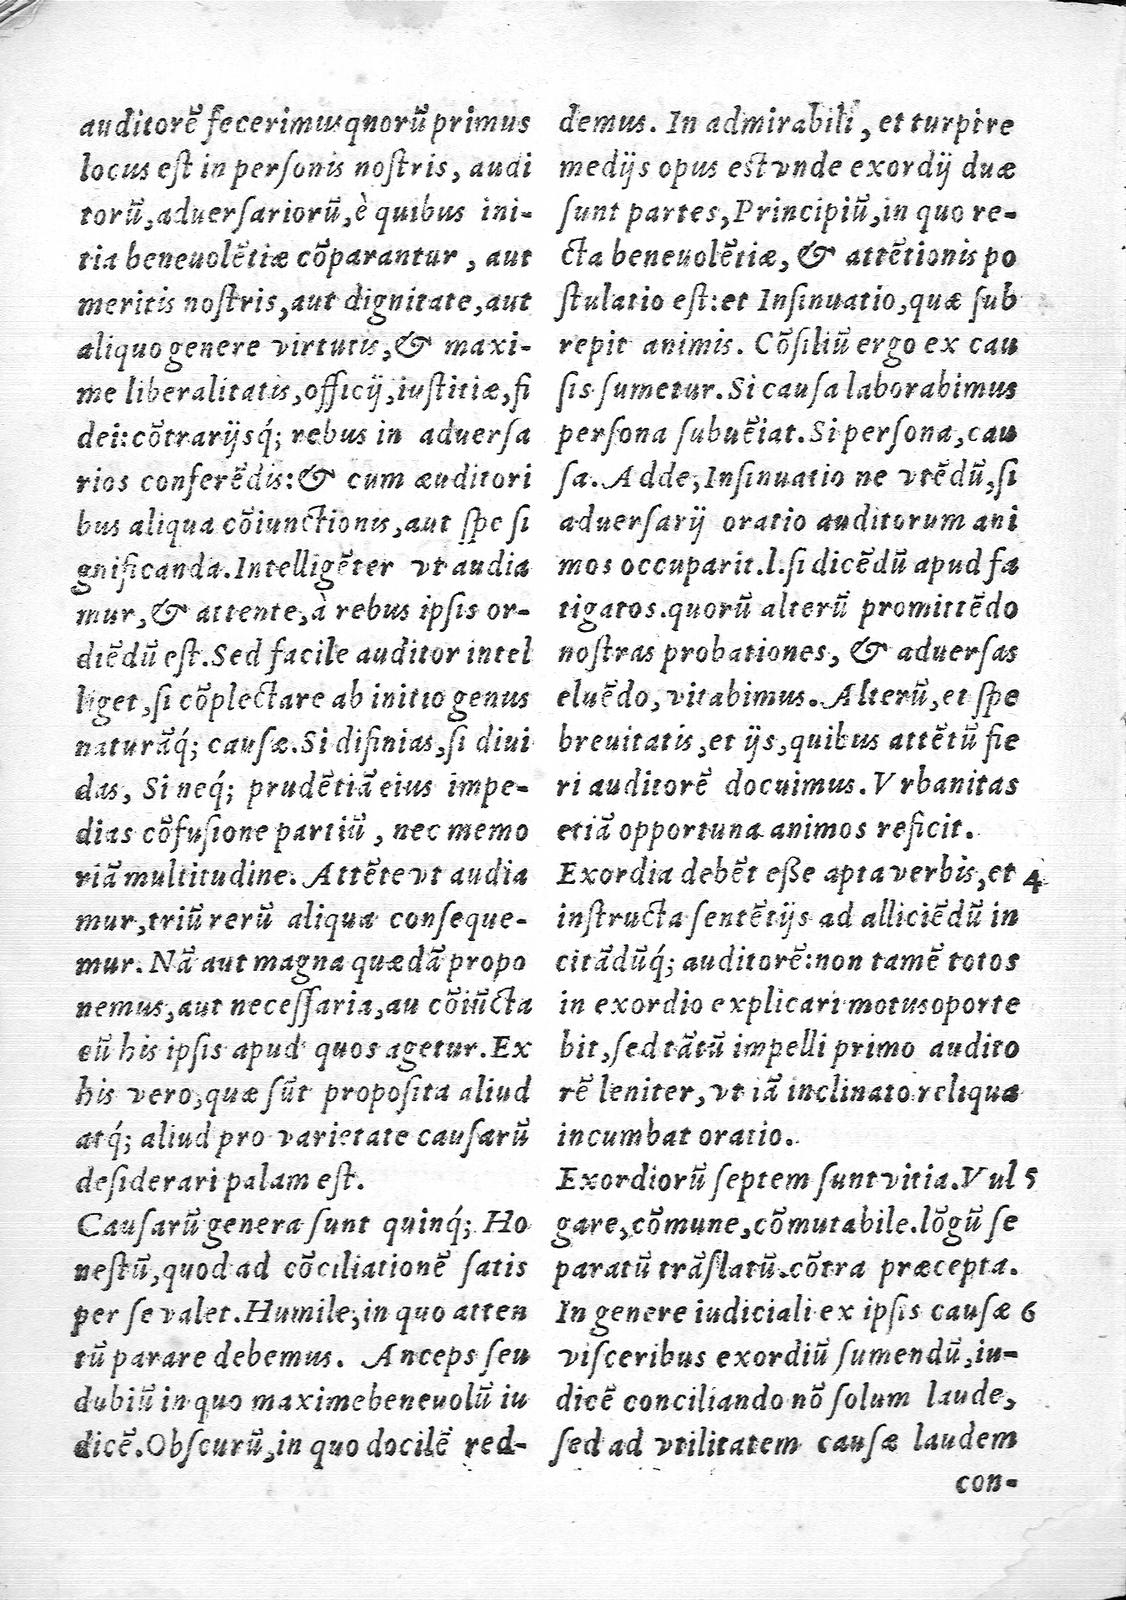 auditorẽ fecerimusqnorũ primus
locus eſt in perſonis noſtris, audi
torũ,aduerſariorũ,è quibus ini-
tia beneuolẽtiæ cõparantur , aut
meritis noſtris,aut dignitate,aut
aliquo genere virtutis,& maxi-
me liberalitatis,officij,iuſtitiæ,fi
dei:cõtrarijsq́; rebus in aduerſa
rios conferẽdis:& cum æuditori
bus aliqua cõiunctionis,aut ſpe ſi
gnificanda.Intelligẽter vt audia
mur,& attente,à rebus ipſis or-
diẽdũ eſt.Sed facile auditor intel
liget,ſi cõplectare ab initio genus
naturãq́; cauſæ.Si difinias,ſi diui
das, Si neq́; prudẽtiã eius impe-
dias cõfuſione partiũ , nec memo
riã multitudine. Attẽte vt audia
mur,triũ rerũ aliqua conſeque-
mur. Nã aut magna quædã propo
nemus,aut neceſſaria,au cõiũcta
cũ his ipſis apud quos agetur.Ex
his vero,quæ sũt propoſita aliud
atq́; aliud pro varietate cauſarũ
deſiderari palam eſt.
Cauſarũ genera ſunt quinq́; Ho
neſtũ,quod ad cõciliationẽ ſatis
per ſe valet.Humile,in quo atten
tũ parare debemus. Anceps ſeu
dubiũ in quo maximebeneuolũ iu
dicẽ.Obſcurũ,in quo docilẽ red-
demus. In admirabili , et turpire
medijs opus eſt vnde exordij duæ
ſunt partes,Principiũ,in quo re-
cta beneuolẽtiæ, & attẽtionis po
ſtulatio eſt:et Inſinuatio,quæ ſub
repit animis. Cõſiliũ ergo ex cau
ſis ſumetur.Si cauſa laborabimus
perſona ſubuẽiat.Si perſona,cau
ſa. Adde,Inſinuatio ne vtẽdũ,ſi
aduerſarij oratio auditorum ani
mos occuparit.l.ſi dicẽdũ apud fa
tigatos.quorũ alterũ promittẽdo
noſtras probationes, & aduerſas
eluẽdo, vitabimus. Alterũ,et ſpe
breuitatis,et ijs,quibus attẽtũ fie
ri auditorẽ docuimus.Vrbanitas
etiã opportuna animos reficit.
Exordia debẽt eſſe apta verbis,et 4
inſtructa ſentẽtijs ad alliciẽdũ in
citãdũq́; auditorẽ:non tamẽ totos
in exordio explicari motusoporte
bit,ſed tãtũ impelli primo audito
rẽ leniter, vt iã inclinato reliqua
incumbat oratio.
Exordiorũ ſeptem ſunt vitia.Vul 5
gare,cõmune,cõmutabile.lõgũ ſe
paratũ trãſlatũ.cõtra præcepta.
In genere iudiciali ex ipſis cauſæ 6
viſceribus exordiũ ſumendũ,iu-
dicẽ conciliando nõ ſolum laude,
ſed ad vtilitatem cauſæ laudem
con-